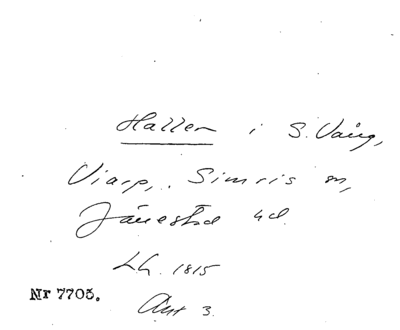 Hallen i S. Vång,
Viarp, Simris sn,
Järrestad hd.
LG. 1815
Akt 3.
Nr 7705.